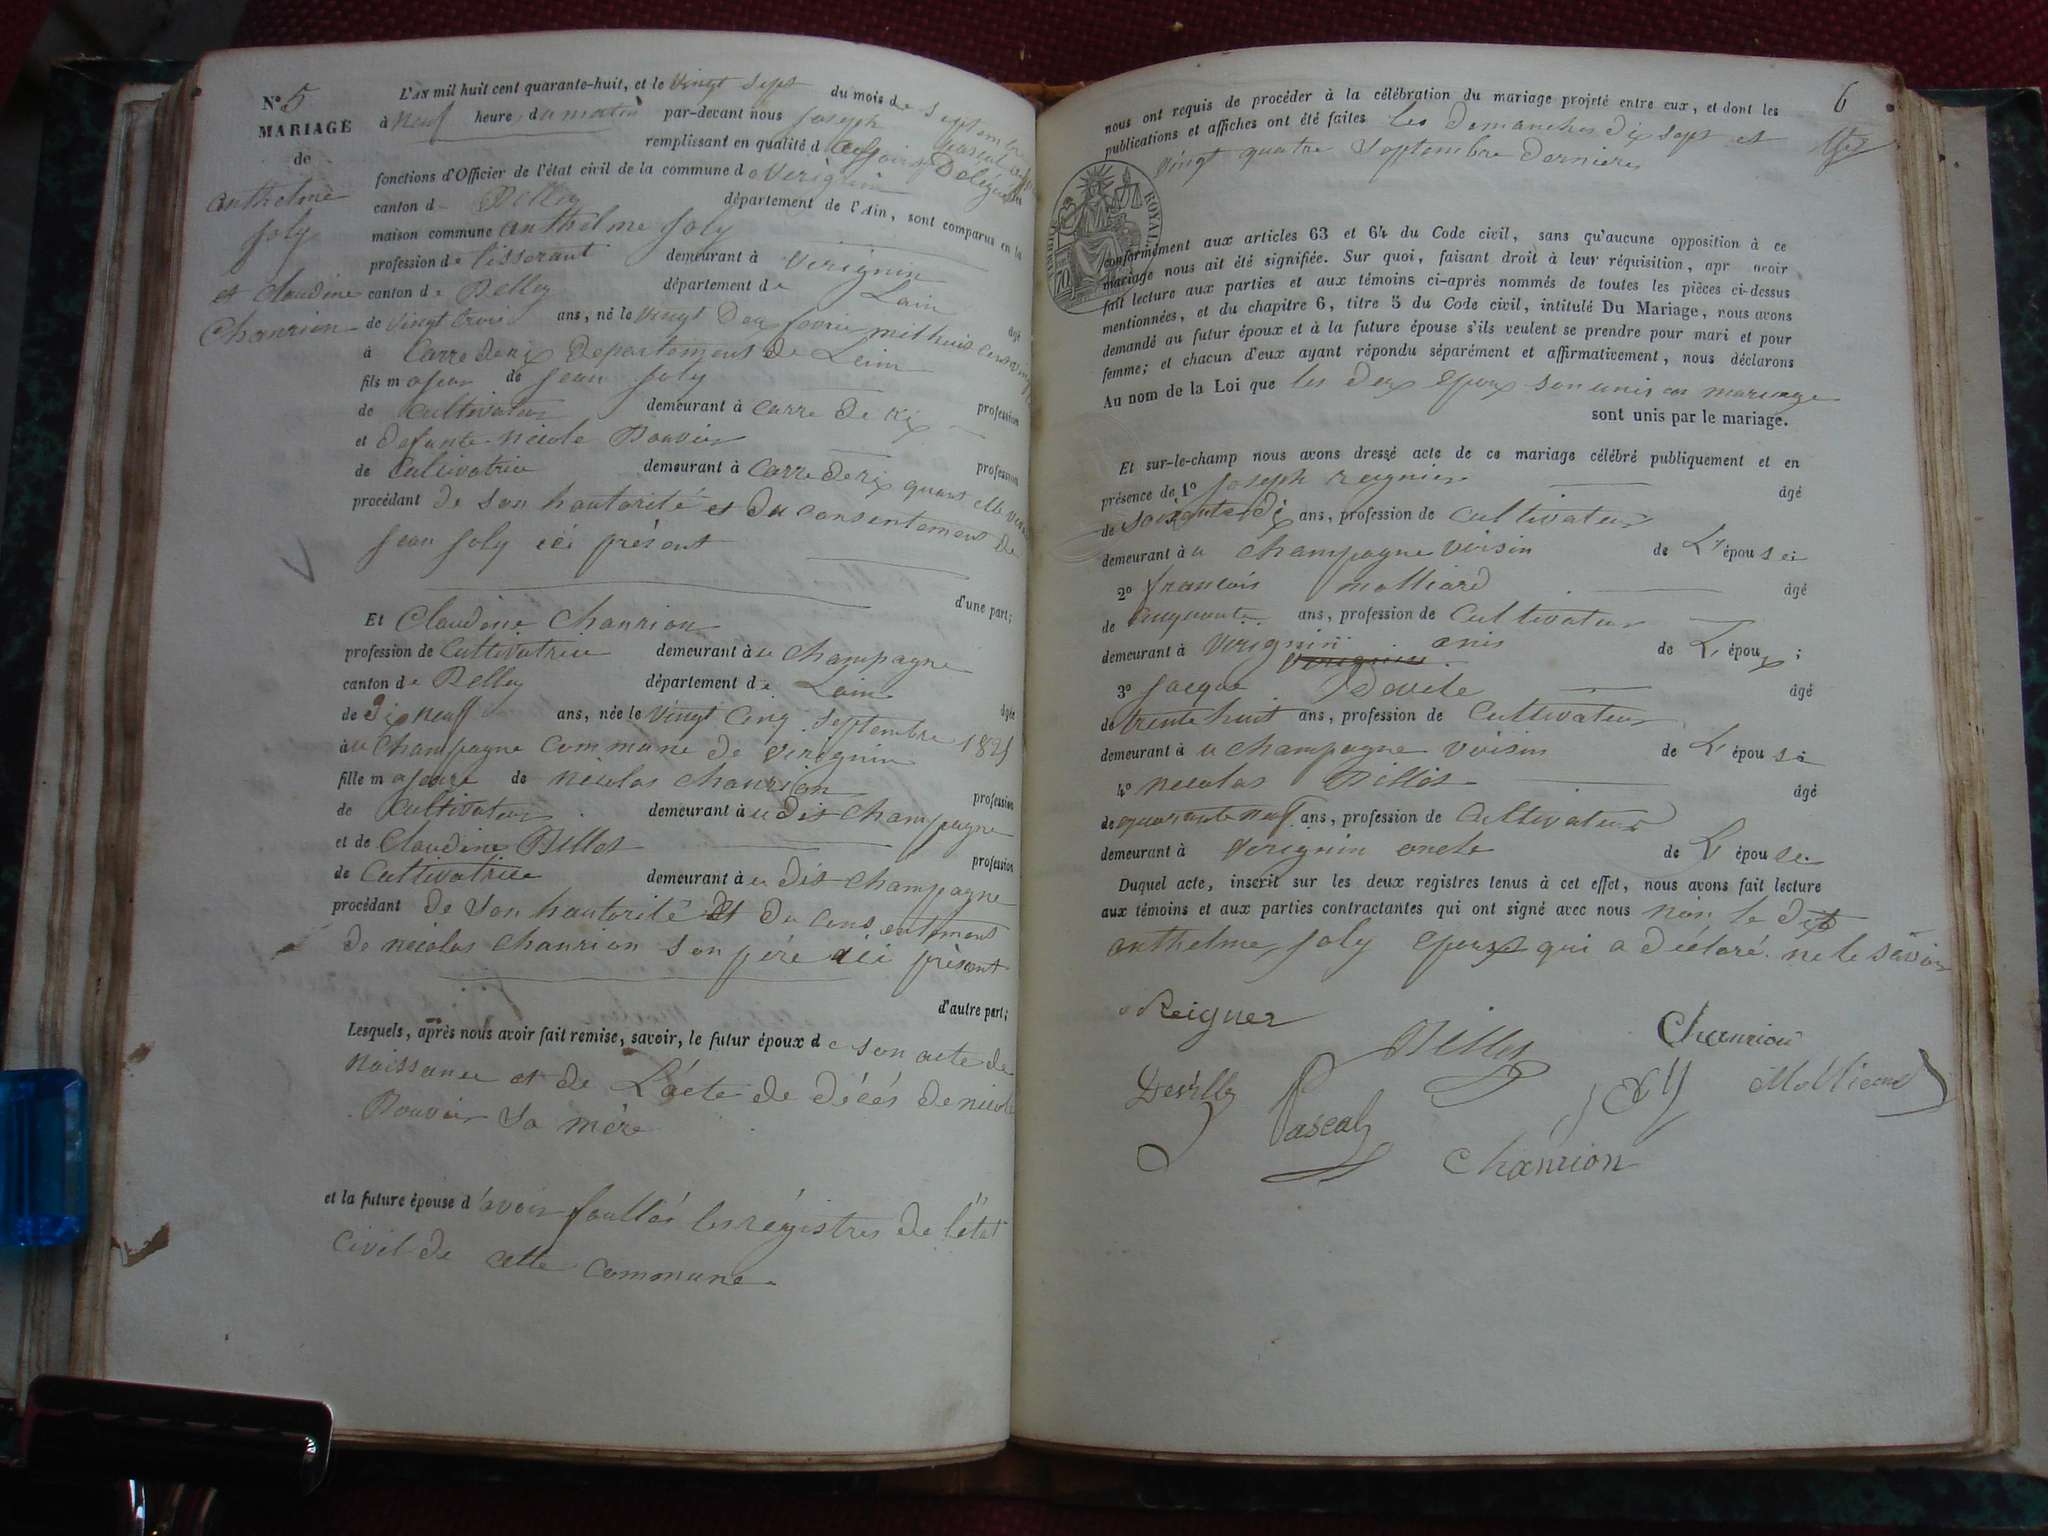 N° 5
MARIAGE
de
anthelme
Joly
et Claudine
Chanrion
L'AN mil huit cent quarante-huit, et le vingt sept du mois de Septembre
à neuf heure du matin par-devant nous Joseph Pascal
remplissant en qualité d Délégué
fonctions d'Officier de l'état civil de la commune de Verignin
canton d Belley département de l'Ain, sont comparus en la
maison commune anthelme Joly
profession de tisserant demeurant à Verignin
canton de Belley département de Lain
âgé
de vingt trois ans, né le vingt Deux fevrie mil huit cent vingt
à Departement de Lain
fils majeur de Jean Joly
profession
de Cultivateur demeurant à
et defunte nicole Bouvier
profession
de Cultivatrice demeurant à quant elle
procédant de son hautorité et du consentement de
Jean Joly ici présent
d'une part;
Et Claudine Chanrion
profession de Cultivatrice demeurant à u Champagne
canton de Belley département de Lain
âgée
de dix neuf ans, née le vingt cinq Septembre
àu Champagne Commune de Virignin
fille majeure de nicolas Chanrion
profession
de Cultivateur demeurant à u dit Champagne
et de Claudine Billot
profession
de Cultivatrice demeurant à u dit Champagne
procédant de son hautorité et du consentement
de nicolas Chanrion son père ici présent
d'autre part;
Lesquels, après nous avoir fait remise, savoir, le futur époux de son acte de
naissance et de L'acte de décés de nicole
Bouvier Sa mère
et la future épouse d'avoir foullés les régistres de l'état
Civil de cette Commune.
6
nous ont requis de procéder à la célébration du mariage projeté entre eux, et dont les
publications et affiches ont été faites les Demanches dix sept et
vingt quatre Septembre Dernieres
ROYAL
conformément aux articles 63 et 64 du Code civil, sans qu'aucune opposition à ce
mariage nous ait été signifiée. Sur quoi, faisant droit à leur réquisition, apr avoir
fait lecture aux parties et aux témoins ci-après nommés de toutes les pièces ci-dessus
mentionnées, et du chapitre 6, titre 5 du Code civil, intitulé Du Mariage, nous avons
demandé au futur époux et à la future épouse s'ils veulent se prendre pour mari et pour
femme; et chacun d'eux ayant répondu séparément et affirmativement, nous déclarons
Au nom de la Loi que les deux Epoux son unis en mariage
sont unis par le mariage.
Et sur-le-champ nous avons dressé acte de ce mariage célébré publiquement et en
présence de 1° Joseph reignier âgé
de soixante dix ans, profession de Cultivateur
demeurant à u Champagne voisin de L'épouse
2° francois molliard âgé
de cinquante ans, profession de Cultivateur
demeurant à Verignin amis de L'époux;
Verignin
3° Jacque Devile âgé
de trente huit ans, profession de Cultivateur
demeurant à u Champagne voisin de L'épouse
4° necolas Billot âgé
de quarante neuf ans, profession de Cultivateur
demeurant à Verignin oncle de L'épouse
Duquel acte, inscrit sur les deux registres tenus à cet effet, nous avons fait lecture
aux témoins et aux parties contractantes qui ont signé avec nous non le dit
anthelme Joly epoux qui a déclaré ne le savoir
Reignier
Billot
Chanrion
Deville
Pascal
Joly
Molliard
Chanrion